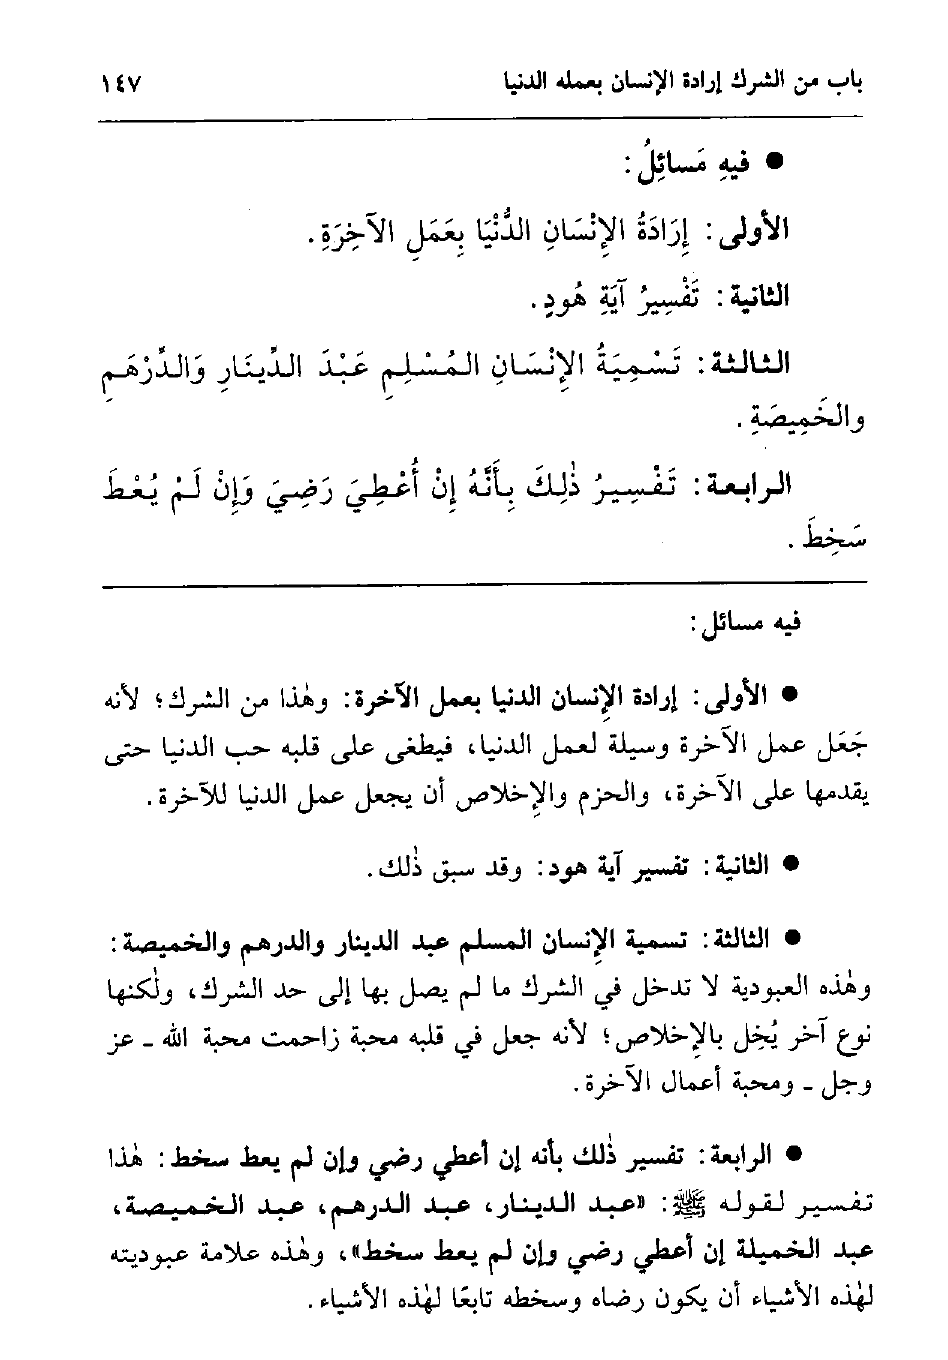 باب من الشرك إرادة الإنسان بعمله الدنيا ١٤٧
● فيهِ مَسائِلُ :
الأولى : إِرَادَةُ الإِنْسَانِ الدُّنْيَا بِعَمَلِ الآخِرَةِ .
الثانية : تَفْسِيرُ آيَةِ هُودٍ .
الثالثة : تَسْمِيَةُ الإِنْسَانِ المُسْلِمِ عَبْدَ الدِّينَارِ وَالدِّرْهَمِ
والخَمِيصَةِ .
الرابعة : تَفْسِيرُ ذٰلِكَ بِأَنَّهُ إِنْ أُعْطِيَ رَضِيَ وَإِنْ لَمْ يُعْطَ
سَخِطَ .
فيه مسائل :
● الأولى : إرادة الإنسان الدنيا بعمل الآخرة : وهٰذا من الشرك ؛ لأنه
جَعَل عمل الآخرة وسيلة لعمل الدنيا ، فيطغى على قلبه حب الدنيا حتى
يقدمها على الآخرة ، والحزم والإخلاص أن يجعل عمل الدنيا للآخرة .
● الثانية : تفسير آية هود : وقد سبق ذٰلك .
● الثالثة : تسمية الإنسان المسلم عبد الدينار والدرهم والخميصة :
وهٰذه العبودية لا تدخل في الشرك ما لم يصل بها إلى حد الشرك ، ولٰكنها
نوع آخر يُخِل بالإخلاص ؛ لأنه جعل في قلبه محبة زاحمت محبة الله ـ عز
وجل ـ ومحبة أعمال الآخرة .
● الرابعة : تفسير ذٰلك بأنه إن أعطي رضي وإن لم يعط سخط : هٰذا
تفسير لقوله ﷺ : «عبد الدينار ، عبد الدرهم ، عبد الخميصة ،
عبد الخميلة إن أعطي رضي وإن لم يعط سخط» ، وهٰذه علامة عبوديته
لهٰذه الأشياء أن يكون رضاه وسخطه تابعًا لهٰذه الأشياء .